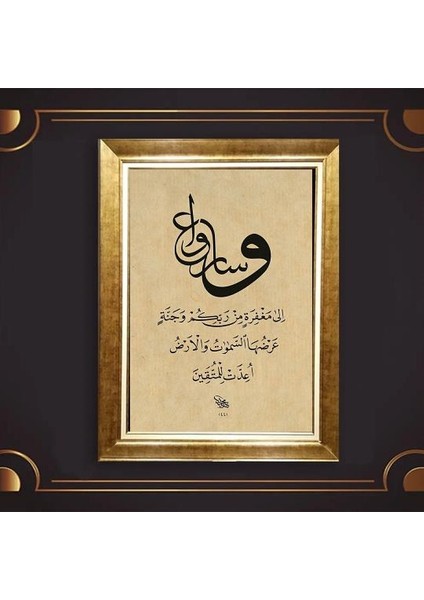 وسارعوا
الى مَغْفِرَةٍ مِنْ رَبِّكُمْ وَجَنَّةٍ
عَرْضُهَا السَّمٰوَاتُ وَالْاَرْضُ
اُعِدَّتْ لِلْمُتَّقِينَ
١٤٤١